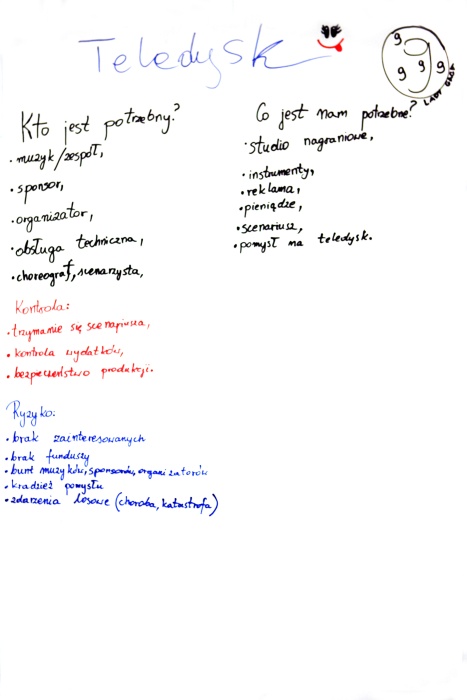 Teledysk
9
9
9 9 9
LADY GROP
Kto jest potrzebny?
• muzyk/zespół,
• sponsor,
• organizator,
• obsługa techniczna,
• choreograf, scenarzysta,
Co jest nam potrzebne?
• studio nagraniowe,
• instrumenty,
• reklama,
• pieniądze,
• scenariusz,
• pomysł na teledysk.
Kontrola:
• trzymanie się scenariusza,
• kontrola wydatków,
• bezpieczeństwo produkcji.
Ryzyko:
• brak zainteresowanych
• brak funduszy
• bunt muzyków, sponsorów, organizatorów
• kradzież pomysłu
• zdarzenia losowe (choroba, katastrofa)